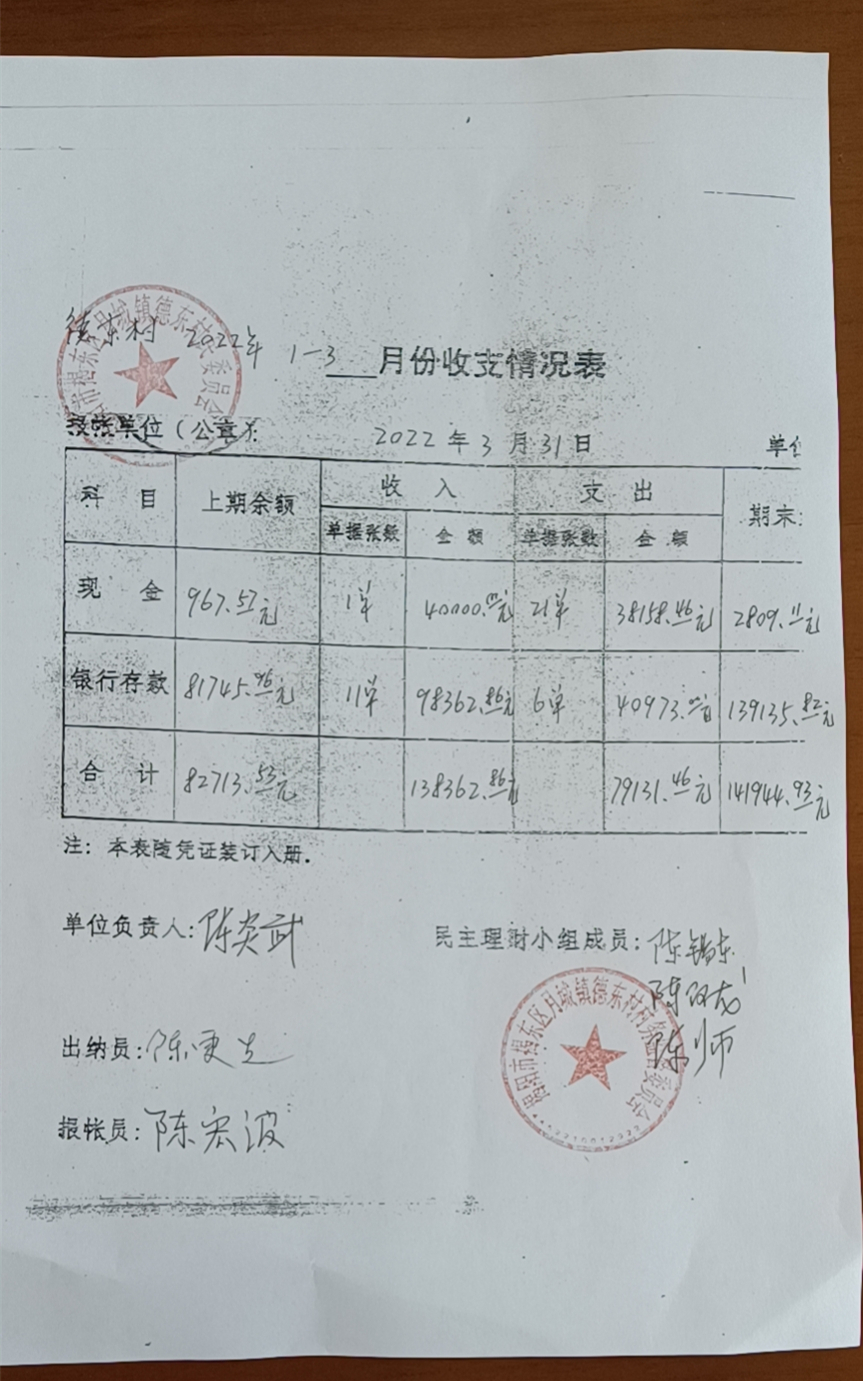 德东村 2022年 1-3 月份收支情况表
报帐单位（公章）：
2022年3月31日
单位
科目 上期余额 收入 支出 期末
单据张数 金额 单据张数 金额
现金 967.57元 1单 40000.00元 21单 38158.46元 2809.11元
银行存款 81745.96元 11单 98362.86元 6单 40973.00元 139135.82元
合计 82713.53元 138362.86元 79131.46元 141944.93元
注：本表随凭证装订入册.
单位负责人:陈炎武
民主理财小组成员:陈锡东
陈
陈师
揭阳市揭东区月城镇德东村村务监督委员会
出纳员:陈更生
报帐员:陈宏波